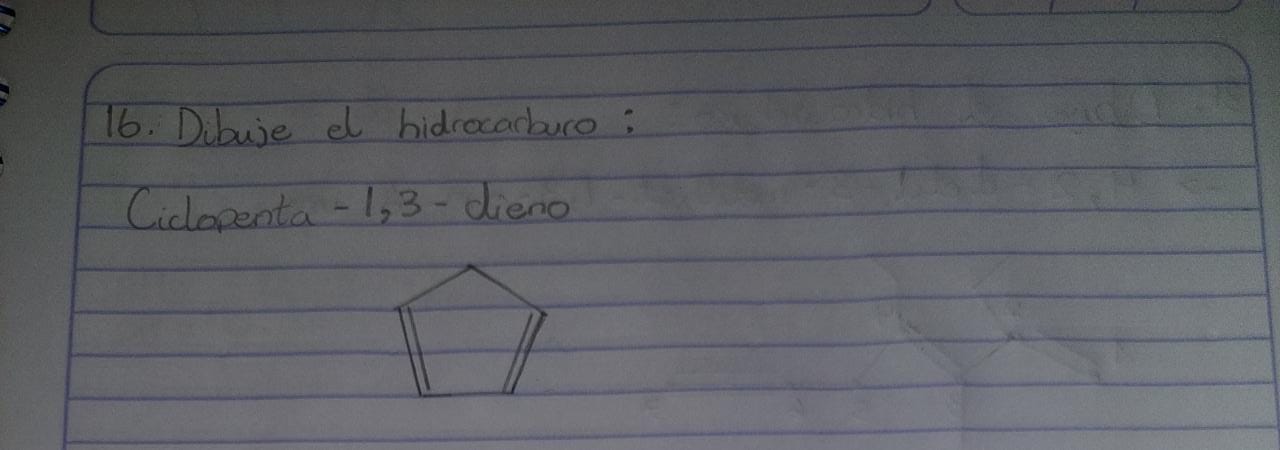 16. Dibuje el hidrocarburo :
Ciclopenta - 1,3 - dieno